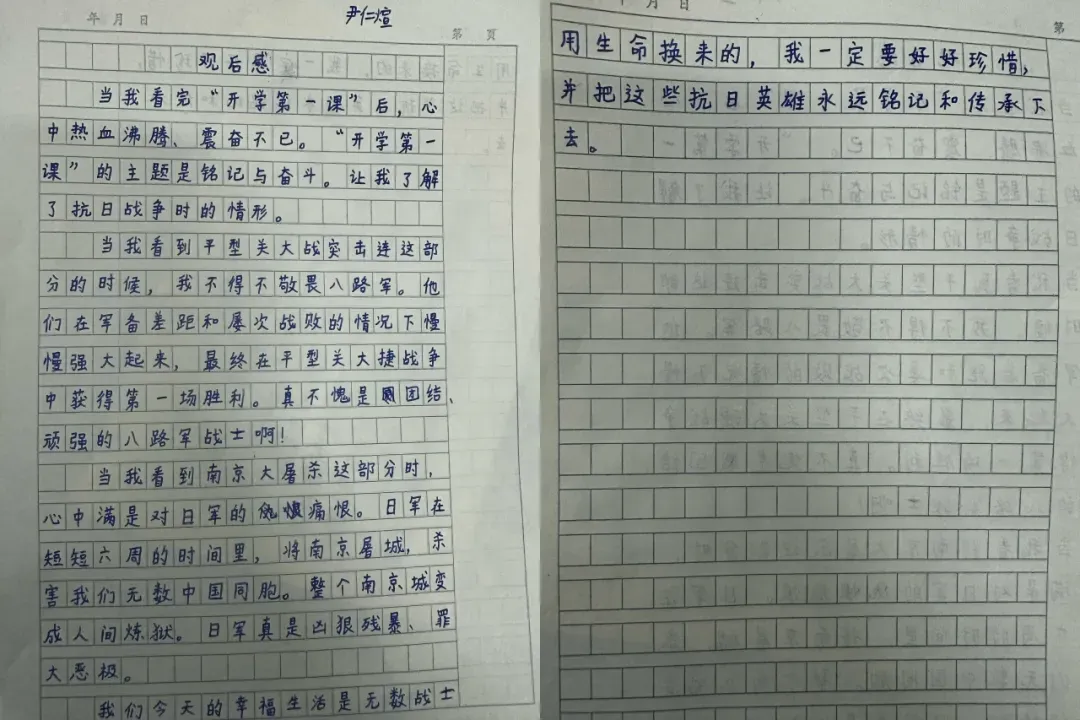 年 月 日
尹仁煊
第 页
观后感
当我看完“开学第一课”后,心
中热血沸腾、震奋不已。“开学第一
课”的主题是铭记与奋斗。让我了解
了抗日战争时的情形。
当我看到平型关大战突击连这部
分的时候,我不得不敬畏八路军。他
们在军备差距和屡次战败的情况下慢
慢强大起来,最终在平型关大捷战争
中获得第一场胜利。真不愧是团结、
顽强的八路军战士啊!
当我看到南京大屠杀这部分时,
心中满是对日军的仇恨痛恨。日军在
短短六周的时间里,将南京屠城,杀
害我们无数中国同胞。整个南京城变
成人间炼狱。日军真是凶狠残暴、罪
大恶极。
我们今天的幸福生活是无数战士
月 日
第
用生命换来的,我一定要好好珍惜,
并把这些抗日英雄永远铭记和传承下
去。